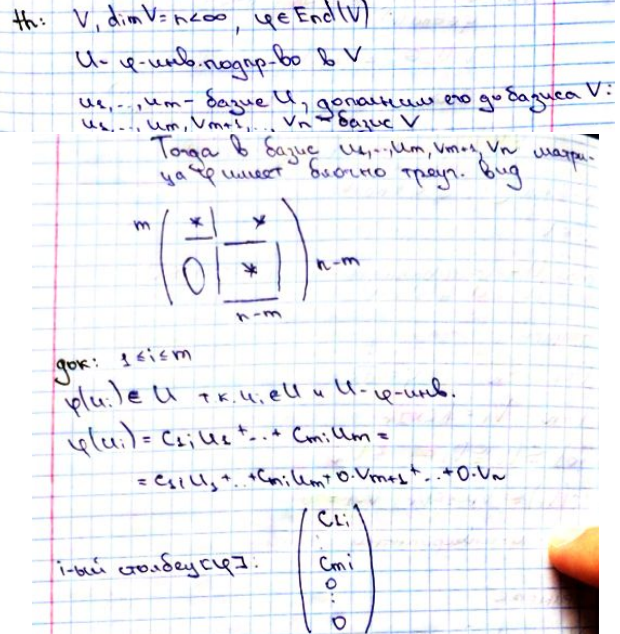 th: V, dim V = n < ∞, φ ∈ End(V)
U - φ-инв. подпр-во в V
u₁,..., um - базис U, дополним его до базиса V:
u₁,..., um, Vm+1,... Vn - базис V
Тогда в базис u₁,..., um, Vm+1, Vn матри-
ца φ имеет блочно треуг. вид
m ( * | * )
( 0 | * ) n-m
n-m
док: 1 ≤ i ≤ m
φ(ui) ∈ U т.к. ui ∈ U и U - φ-инв.
φ(ui) = C1i u1 +..+ Cmi um =
= C1i u1 +..+ Cmi um + 0·Vm+1 +..+ 0·Vn
i-ый столбец [φ]:
C1i
⋮
Cmi
0
⋮
0